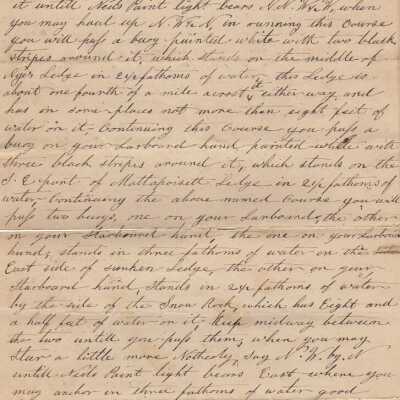 it untill Neds Point light bears N.N.W&W, when
you may haul up N.W&N, in running this Course
you will pass a buoy painted white with two black
stripes around it, which stands on the middle of
Nyes Ledge in 2½ fathoms of water, this Ledge is
about one fourth of a mile across it either way and
has on some places not more then eight feet of
water on it - Continuing this Course you pass a
buoy on your Larboard hand painted white with
three black stripes around it, which stands on the
S.E part of Mattapoisett Ledge in 2½ fathoms of
water, Continuing the above named Course you will
pass two buoys, one on your Larboard, the other
on your Starboard hand, the one on your Larboard
hand, stands in three fathoms of water on the
East side of sunken Ledge, the other on your
Starboard hand, Stands in 2½ fathoms of water
by the side of the Snow Rock, which has Eight and
a half feet of water on it, Keep midway between
the two untill you pass them, when you may
Stear a little more Notherly, Say N.W. by N
untill Neds Point light bears East where you
may anchor in three fathoms of water good